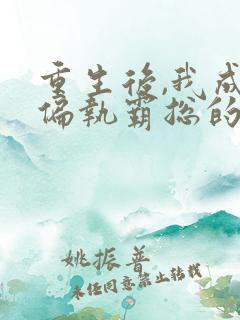 重生后,我成
偏执霸总的
姚振普
未任同意禁止转载